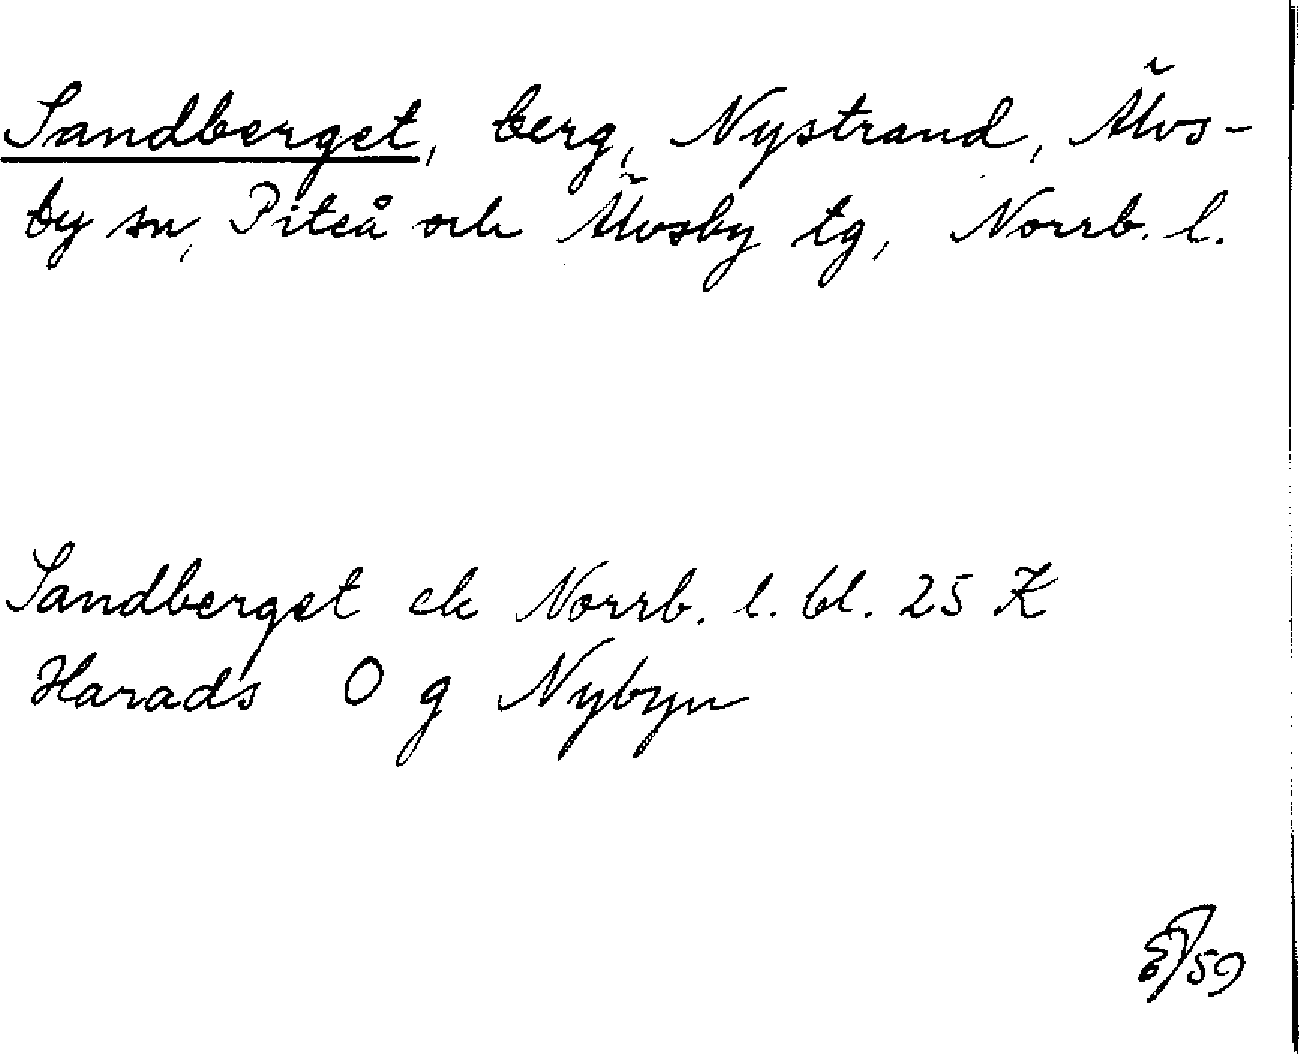 Sandberget, berg, Nystrand, Älvs-
by sn, Piteå och Älvsby tg, Norrb. l.
Sandberget ek Norrb. l. bl. 25 K
Harads O g Nybyn
59